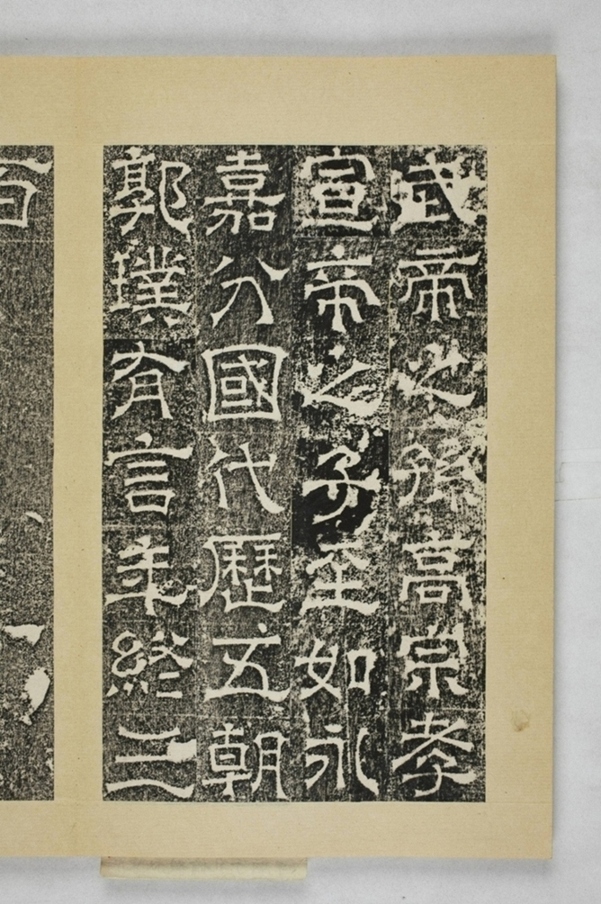 武帝之孫高宗孝
宣帝之子至如永
嘉分國代歷五朝
郭璞有言年終三
百